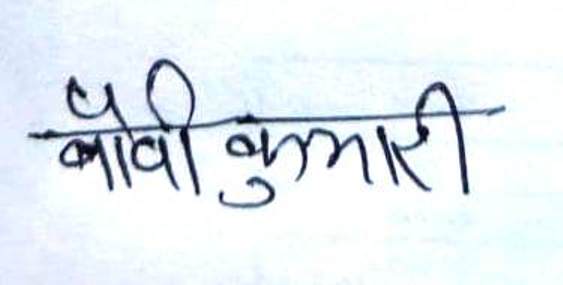 बॉवी कुमारी